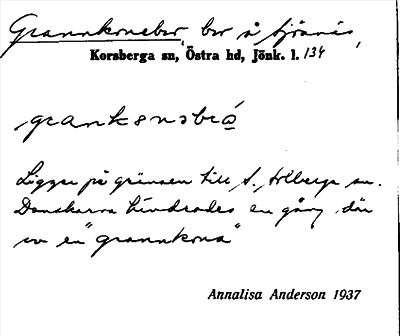 Grannkonebro, bro å Hjärtås,
Korsberga sn, Östra hd, Jönk. l. 134
grankənsbro
Ligger på gränsen till S. Solberga sn.
Danskarna hindrades en gång där
av en "grannkona"
Annalisa Anderson 1937